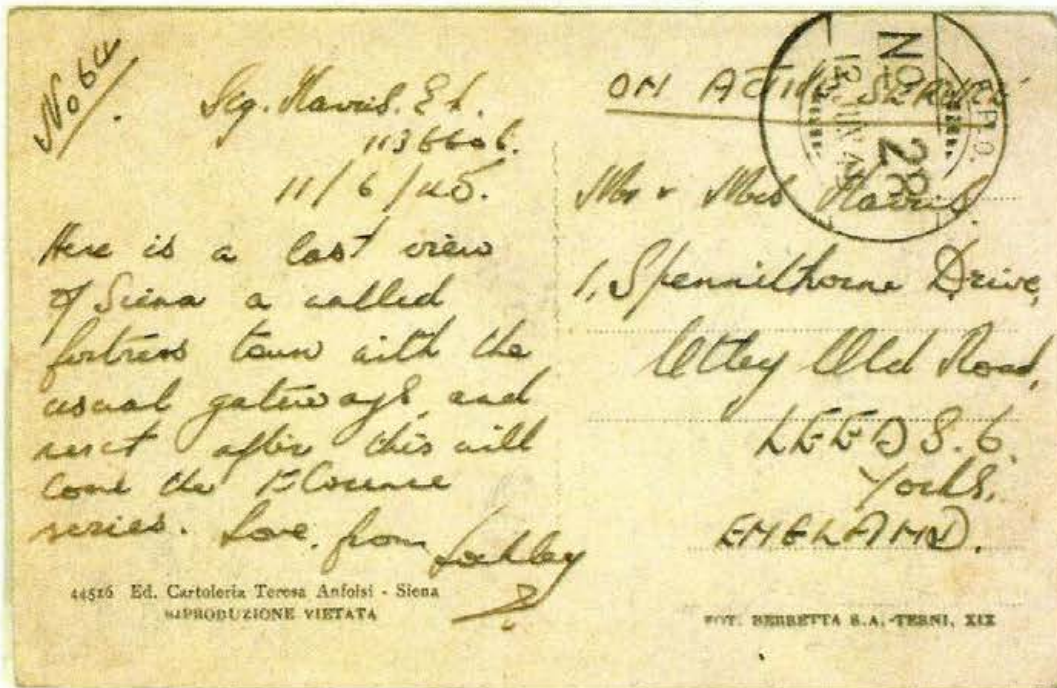 No 64/.
Sig. Harris. E L.
11366606.
11/6/45.
Here is a last view
of Siena a walled
fortress town with the
usual gateways, and
next after this will
come the Florence
series. Love, from Lockley
44516 Ed. Cartoleria Teresa Anfoisi - Siena
RIPRODUZIONE VIETATA
ON ACTIVE SERVICE
F.P.O.
No 28
12 JUN 45
Mr & Mrs Harris.
1, Spennithorne Drive,
Otley Old Road,
LEEDS. 6.
Yorks,
ENGLAND.
FOT. BERRETTA S.A.-TERNI, XIX